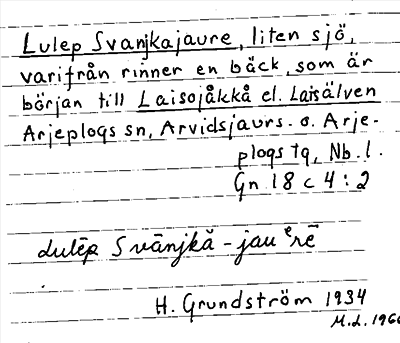 Lulep Svanjkajaure, liten sjö,
varifrån rinner en bäck, som är
början till Laisojåkkå el. Laisälven
Arjeplogs sn, Arvidsjaurs- o. Arje-
plogs tg, Nb. l.
Gn 18 c 4:2
Lulēp Svānjkă-jauᵉrē
H. Grundström 1934
M.L. 1966